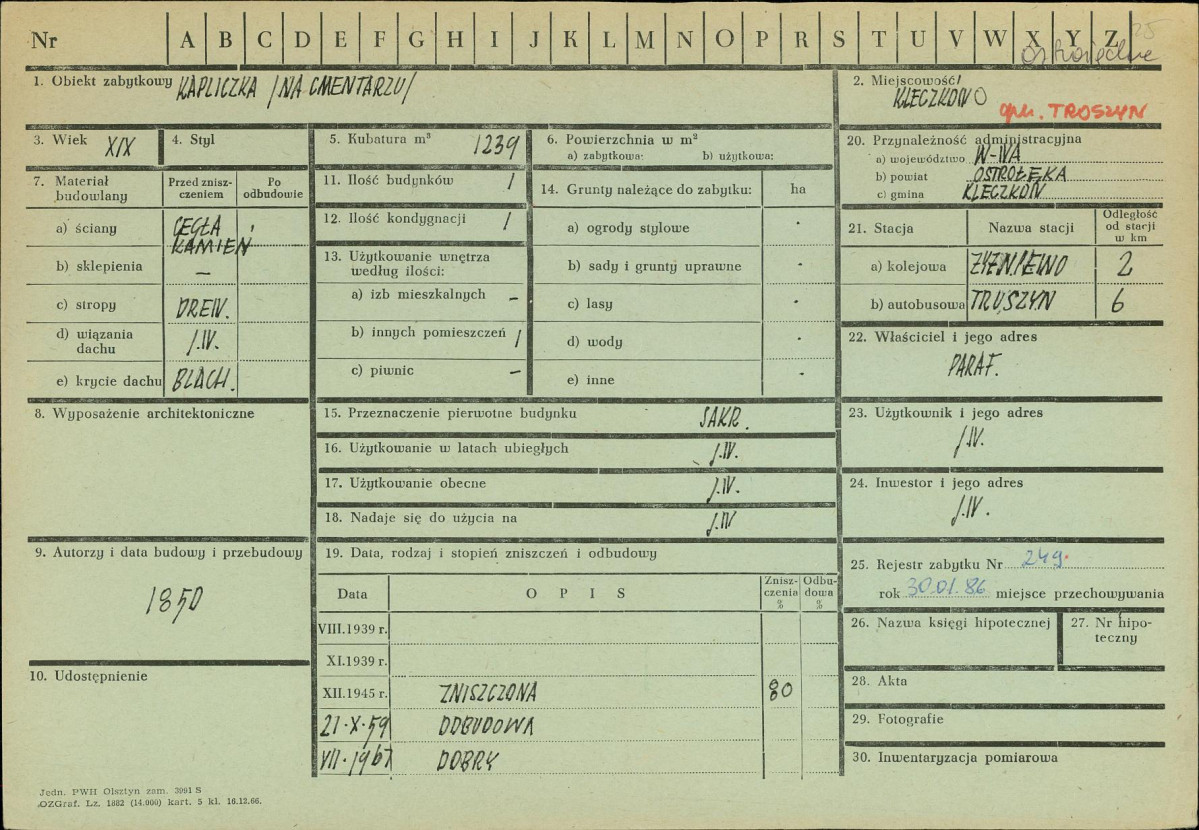 Nr A B C D E F G H I J K L M N O P R S T U V W X Y Z
25
1. Obiekt zabytkowy KAPLICZKA /NA CMENTARZU/
2. Miejscowość/
KLECZKOWO
gm. TROSZYN
3. Wiek XIX
4. Styl
5. Kubatura m³ 1239
6. Powierzchnia w m²
a) zabytkowa: b) użytkowa:
7. Materiał budowlany
Przed znisz-
czeniem
Po
odbudowie
a) ściany CEGŁA,
KAMIEŃ
b) sklepienia —
c) stropy DREW.
d) wiązania
dachu J.W.
e) krycie dachu BLACH.
8. Wyposażenie architektoniczne
9. Autorzy i data budowy i przebudowy
1850
10. Udostępnienie
11. Ilość budynków 1
12. Ilość kondygnacji 1
13. Użytkowanie wnętrza
według ilości:
a) izb mieszkalnych —
b) innych pomieszczeń 1
c) piwnic —
14. Grunty należące do zabytku: ha
a) ogrody stylowe -
b) sady i grunty uprawne -
c) lasy -
d) wody -
e) inne -
15. Przeznaczenie pierwotne budynku SAKR.
16. Użytkowanie w latach ubiegłych J.W.
17. Użytkowanie obecne J.W.
18. Nadaje się do użycia na J.W
19. Data, rodzaj i stopień zniszczeń i odbudowy
Data OPIS Znisz-
czenia
% Odbu-
dowa
%
VIII.1939 r.
XI.1939 r.
XII.1945 r. ZNISZCZONA 80
21·X·59 ODBUDOWA
VII·1967 DOBRY
20. Przynależność administracyjna
a) województwo W-WA
b) powiat OSTROŁĘKA
c) gmina KLECZKOW
21. Stacja Nazwa stacji Odległość
od stacji
w km
a) kolejowa 2
b) autobusowa TROSZYN 6
22. Właściciel i jego adres
PARAF.
23. Użytkownik i jego adres
J.W.
24. Inwestor i jego adres
J.W.
25. Rejestr zabytku Nr 249.
rok 30.01.86 miejsce przechowywania
26. Nazwa księgi hipotecznej
27. Nr hipo-
teczny
28. Akta
29. Fotografie
30. Inwentaryzacja pomiarowa
Jedn. PWH Olsztyn zam. 3991 S
OZGraf. Lz. 1882 (14.000) kart. 5 kl. 16.12.66.